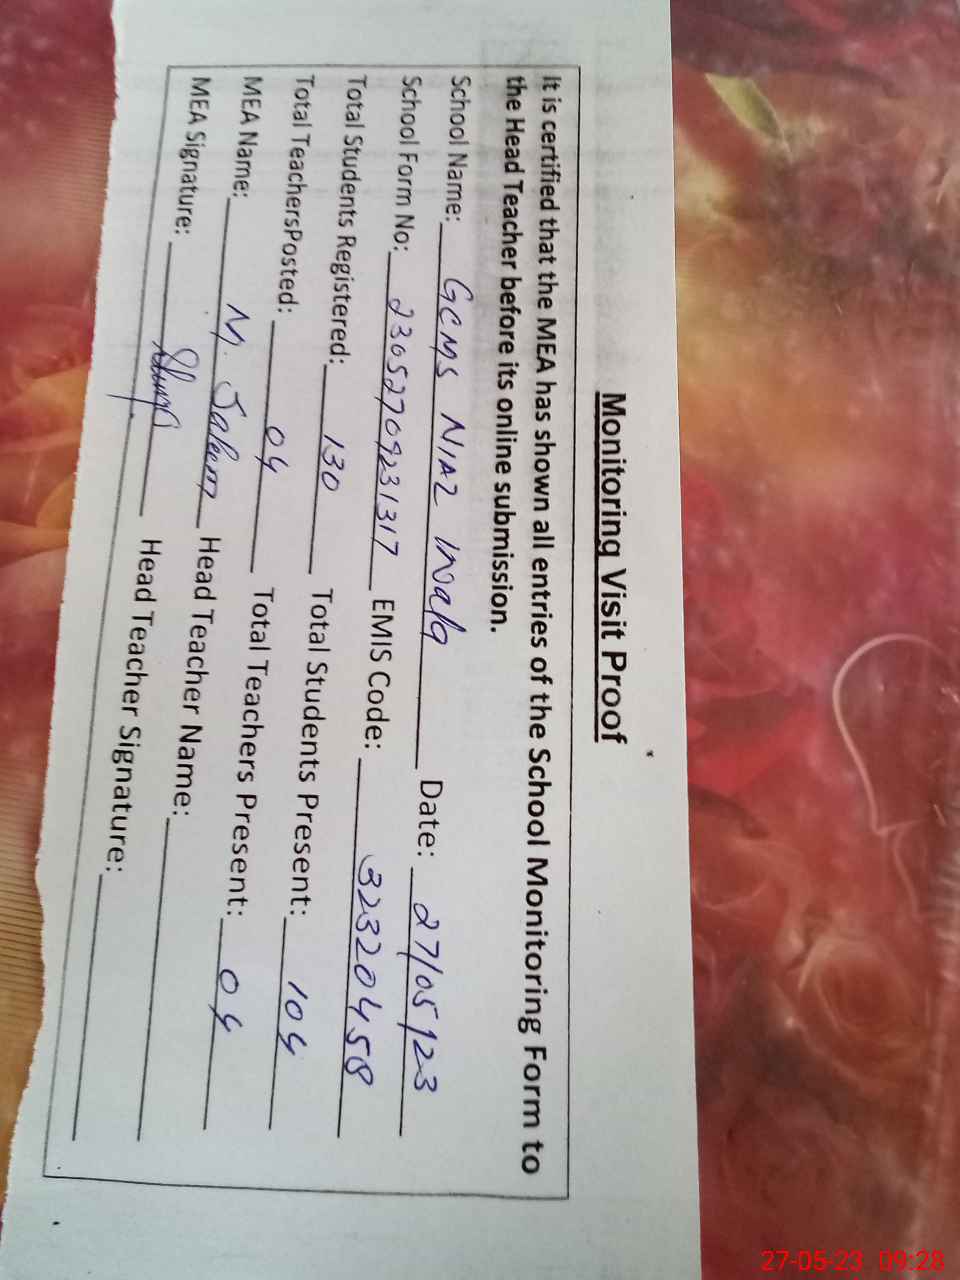 Monitoring Visit Proof
It is certified that the MEA has shown all entries of the School Monitoring Form to
the Head Teacher before its online submission.
School Name: GCMS NIAZ Wala Date: 27/05/23
School Form No: 23052709231317 EMIS Code: 32320458
Total Students Registered: 130 Total Students Present: 104
Total TeachersPosted: 04 Total Teachers Present: 04
MEA Name: M. Saleem Head Teacher Name:
MEA Signature: Head Teacher Signature:
27-05-23 09:28